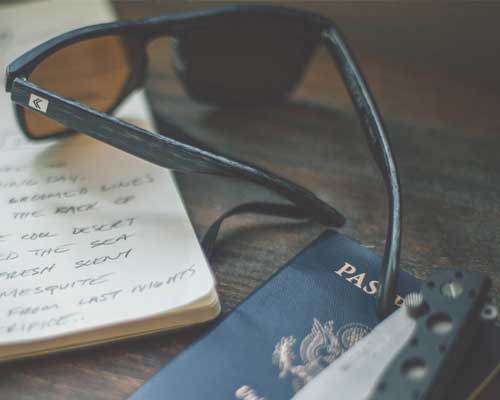 NING DAY.
GROOMED LINES
THE BACK OF
COOL DESERT
ED THE SEA
FRESH SCENT
MESQUITE
FROM LAST NIGHTS
CRIFICE..
PAS